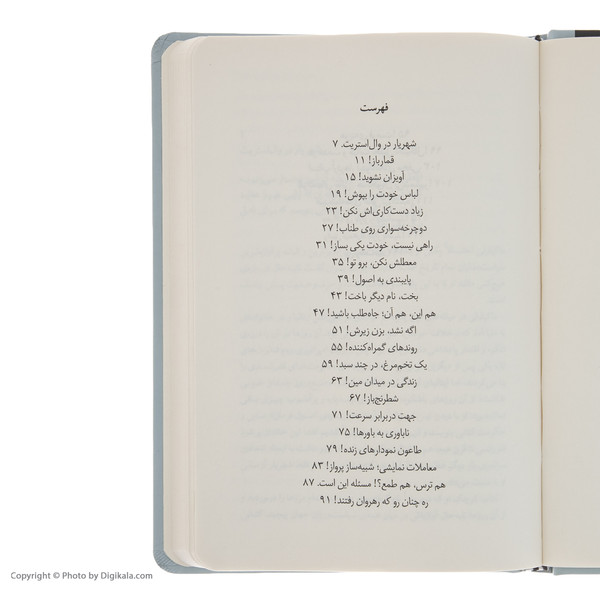 فهرست
شهریار در وال‌استریت. ۷
قمارباز! ۱۱
آویزان نشوید! ۱۵
لباس خودت را بپوش! ۱۹
زیاد دست‌کاری‌اش نکن! ۲۳
دوچرخه‌سواری روی طناب! ۲۷
راهی نیست، خودت یکی بساز! ۳۱
معطلش نکن، برو تو! ۳۵
پایبندی به اصول! ۳۹
بخت، نام دیگر باخت! ۴۳
هم این، هم آن؛ جاه‌طلب باشید! ۴۷
اگه نشد، بزن زیرش! ۵۱
روندهای گمراه‌کننده! ۵۵
یک تخم‌مرغ، در چند سبد! ۵۹
زندگی در میدان مین! ۶۳
شطرنج‌باز! ۶۷
جهت دربرابر سرعت! ۷۱
ناباوری به باورها! ۷۵
طاعون نمودارهای زنده! ۷۹
معاملات نمایشی؛ شبیه‌ساز پرواز! ۸۳
هم ترس، هم طمع؟! مسئله این است. ۸۷
ره چنان رو که رهروان رفتند! ۹۱
Copyright © Photo by Digikala.com